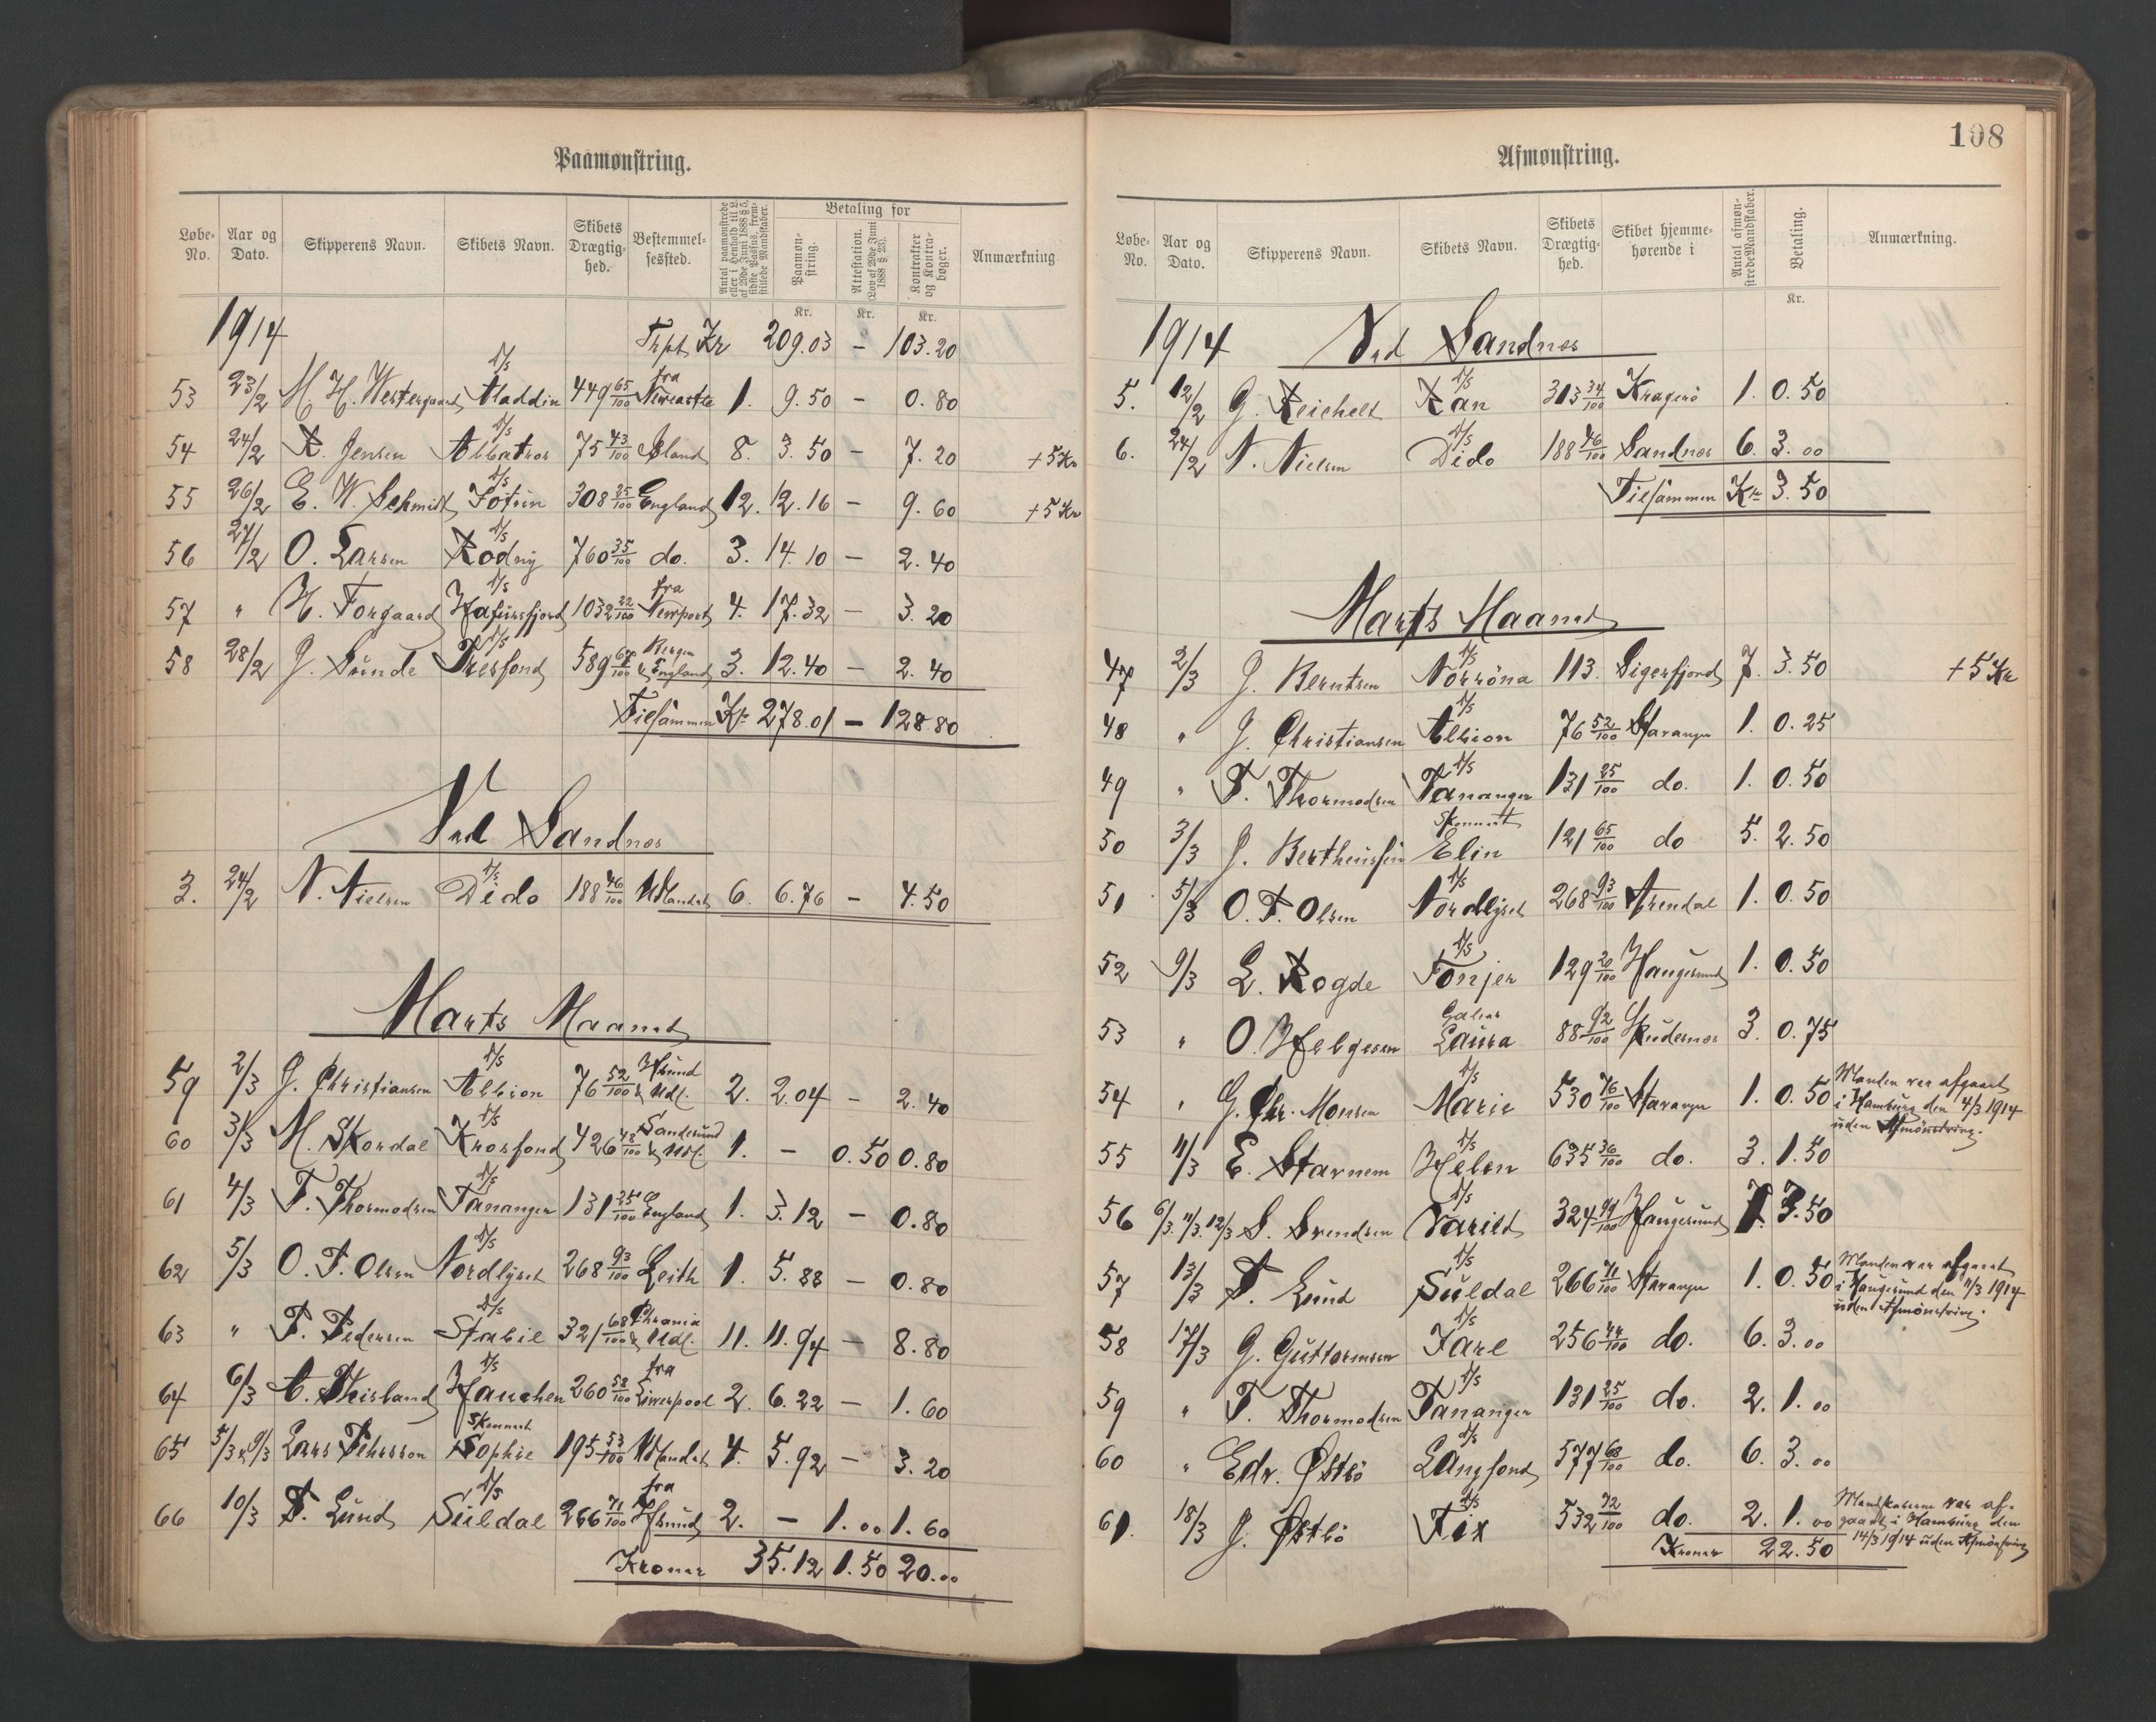 Paamønstring.
Løbe-No. Aar og Dato. Skipperens Navn. Skibets Navn. Skibets Drægtig-hed. Bestemmel-sessted. Antal paamønstrede eller i Henhold til L. af 29de Juni 1888 § 5, sidste Passus, frem-stillede Mandskaber. Betaling for Paamøn-string. Attestation. (Lov af 29de Juni 1888 § 23). Kontrakter og Kontra-bøger. Anmærkning.
Kr. Kr. Kr.
1914 Trpt Kr 209.03 – 103.20
53 23/2 M. H. Westergaard D/S Aladdin 449 65/100 fra Newcastle 1. 9.50 – 0.80
54 24/2 R. Jensen D/S Albatros 75 43/100 Island 8. 3.50 – 7.20 +5 Kr
55 26/2 E. W. Schmidt D/S Jotun 308 25/100 England 12. 12.16 – 9.60 +5 Kr
56 27/2 O. Larsen D/S Rodny 760 35/100 do. 3. 14.10 – 2.40
57 " H. Torgaard D/S Hafursfjord 1032 22/100 fra Newport 4. 17.32 – 3.20
58 28/2 J. Sunde D/S Tresfond 589 /100 Bergen & England 3. 12.40 – 2.40
Tilsammen Kr 278.01 – 128.80
Ved Sandnes
3. 24/2 N. Nielsen D/S Dido 188 46/100 Udlandet 6. 6.76 – 4.50
Marts Maaned
59 2/3 J. Christiansen D/S Albion 76 52/100 Hsund & Udl. 2. 2.04 – 2.40
60 3/3 M. Skordal D/S Krosfond 426 48/100 Sandesund & Udl. 1. – 0.50 0.80
61 4/3 T. Thormodsen D/S Tananger 131 25/100 England 1. 3.12 – 0.80
62 5/3 O. T. Olsen D/S Nordlyset 268 93/100 Leith 1. 5.88 – 0.80
63 " T. Pedersen D/S Stabil 321 68/100 Chrania & Udl. 11. 11.94 – 8.80
64 6/3 A. Thisland D/S Hauchen 260 58/100 fra Liverpool 2. 6.22 – 1.60
65 5/3 & 9/3 Lars Pehrsson Skonnert Sophie 195 53/100 Udlandet 4. 5.92 – 3.20
66 10/3 T. Lund D/S Suldal 266 71/100 fra Hsund 2. – 1.00 1.60
Kroner 35.12 1.50 20.00
108
Afmønstring.
Løbe-No. Aar og Dato. Skipperens Navn. Skibets Navn. Skibets Drægtig-hed. Skibet hjemme-hørende i Antal afmøn-strede Mandskaber. Betaling. Anmærkning.
Kr.
1914 Ved Sandnes
5. 12/2 G. Reichelt D/S Ran 313 34/100 Kragerö 1. 0.50
6. 24/2 N. Nielsen D/S Dido 188 46/100 Sandnes 6. 3.00
Tilsammen Kr 3.50
Marts Maaned
47 2/3 J. Berntsen D/S Norröna 113. Sigerfjord 7. 3.50 +5 Kr
48 " J. Christiansen D/S Albion 76 52/100 Stavanger 1. 0.25
49 " T. Thormodsen D/S Tananger 131 25/100 do. 1. 0.50
50 3/3 J. Bertheussen Skonnert Elin 121 65/100 do 5. 2.50
51 5/3 O. T. Olsen D/S Nordlyset 268 93/100 Arendal 1. 0.50
52 9/3 L. Rogde D/S Tonjer 129 20/100 Haugesund 1. 0.50
53 " O. Helgesen Galeas Laura 88 92/100 Skudenes 3. 0.75
54 " G. Chr. Monsen D/S Marie 530 76/100 Stavanger 1. 0.50 Manden var afgaaet
i Hamburg den 4/3 1914
uden Afmönstring.
55 11/3 E. Stavnem D/S Helen 635 36/100 do. 3. 1.50
56 6/3. 11/3. 12/3 S. Svendsen D/S Varild 324 99/100 Haugesund 7. 3.50
57 13/3 T. Lund D/S Suldal 266 71/100 Stavanger 1. 0.50 Manden var afgaaet
i Haugesund den 11/3 1914
uden Afmönstring.
58 17/3 G. Guttormsen D/S Jarl 256 44/100 do. 6. 3.00
59 " T. Thormodsen D/S Tananger 131 25/100 do. 2. 1.00
60 " Edv. Østbö D/S Langfond 577 68/100 do. 6. 3.00
61. 18/3 J. Østbö D/S Fix 532 72/100 do. 2. 1.00 Mandskaberne var af-
gaaet i Hamburg den
14/3 1914 uden Afmönstring
Kroner 22.50